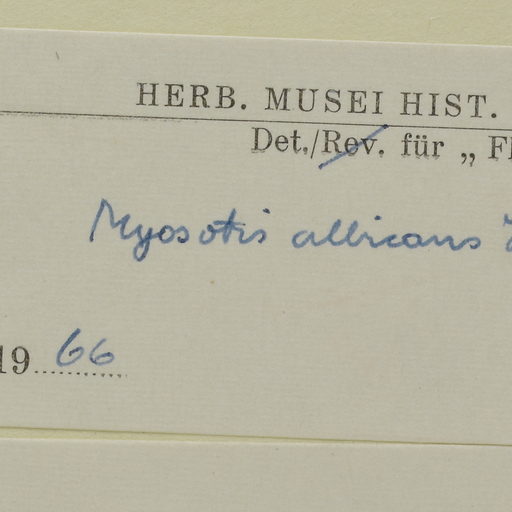 HERB. MUSEI HIST.
Det./Rev. für „ Fl
Myosotis albicans
19 66